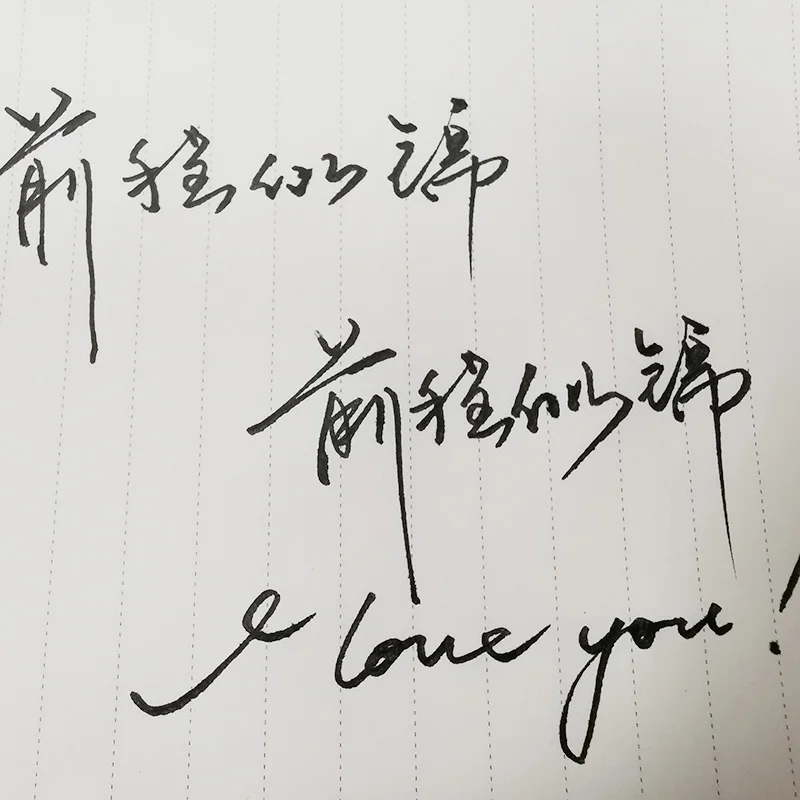 前程似锦
前程似锦
I love you!